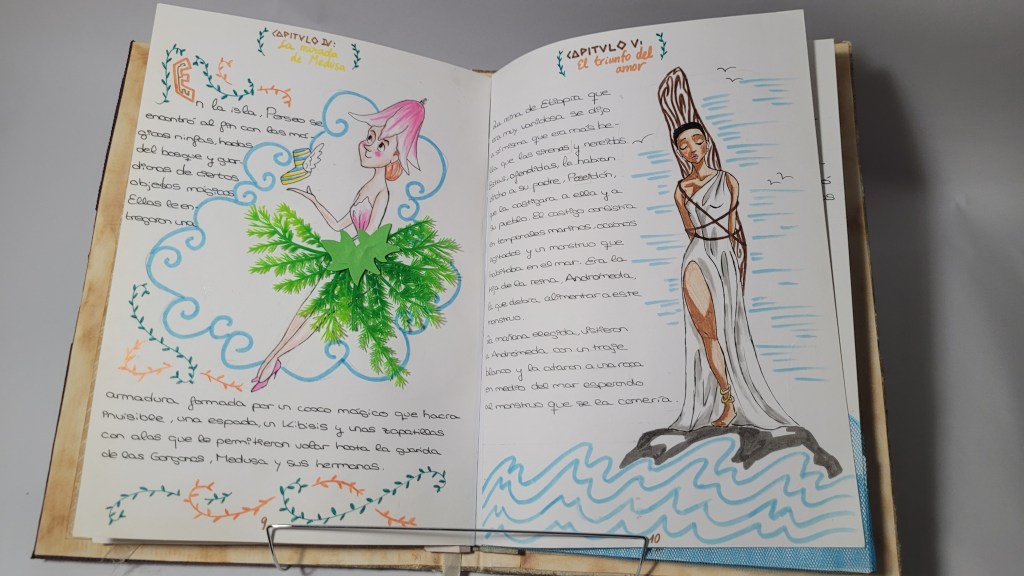 CAPITVLO IV:
La mirada
de Medusa
En la isla, Perseo se
encontró al fin con las má-
gicas ninfas, hadas
del bosque y guar-
dianas de ciertos
objetos mágicos.
Ellas le en-
tregaron una
armadura formada por un casco mágico que hacía
invisible, una espada, un Kibisis y unas zapatillas
con alas que le permitieron volar hasta la guarida
de las Gorgonas, Medusa y sus hermanas.
9
CAPITVLO V:
El triunfo del
amor
La reina de Etiopía que
era muy vanidosa se dijo
a sí misma que era más be-
lla que las sirenas y nereidas.
Estas, ofendidas, le habían
dicho a su padre, Poseidón,
que la castigara a ella y a
su pueblo. El castigo consistía
en temporales marinos, océanos
agitados y un monstruo que
habitaba en el mar. Era la
hija de la reina, Andrómeda,
la que debía alimentar a este
monstruo.
La mañana elegida, vistieron
a Andrómeda con un traje
blanco y la ataron a una roca
en medio del mar esperando
al monstruo que se la comería.
10